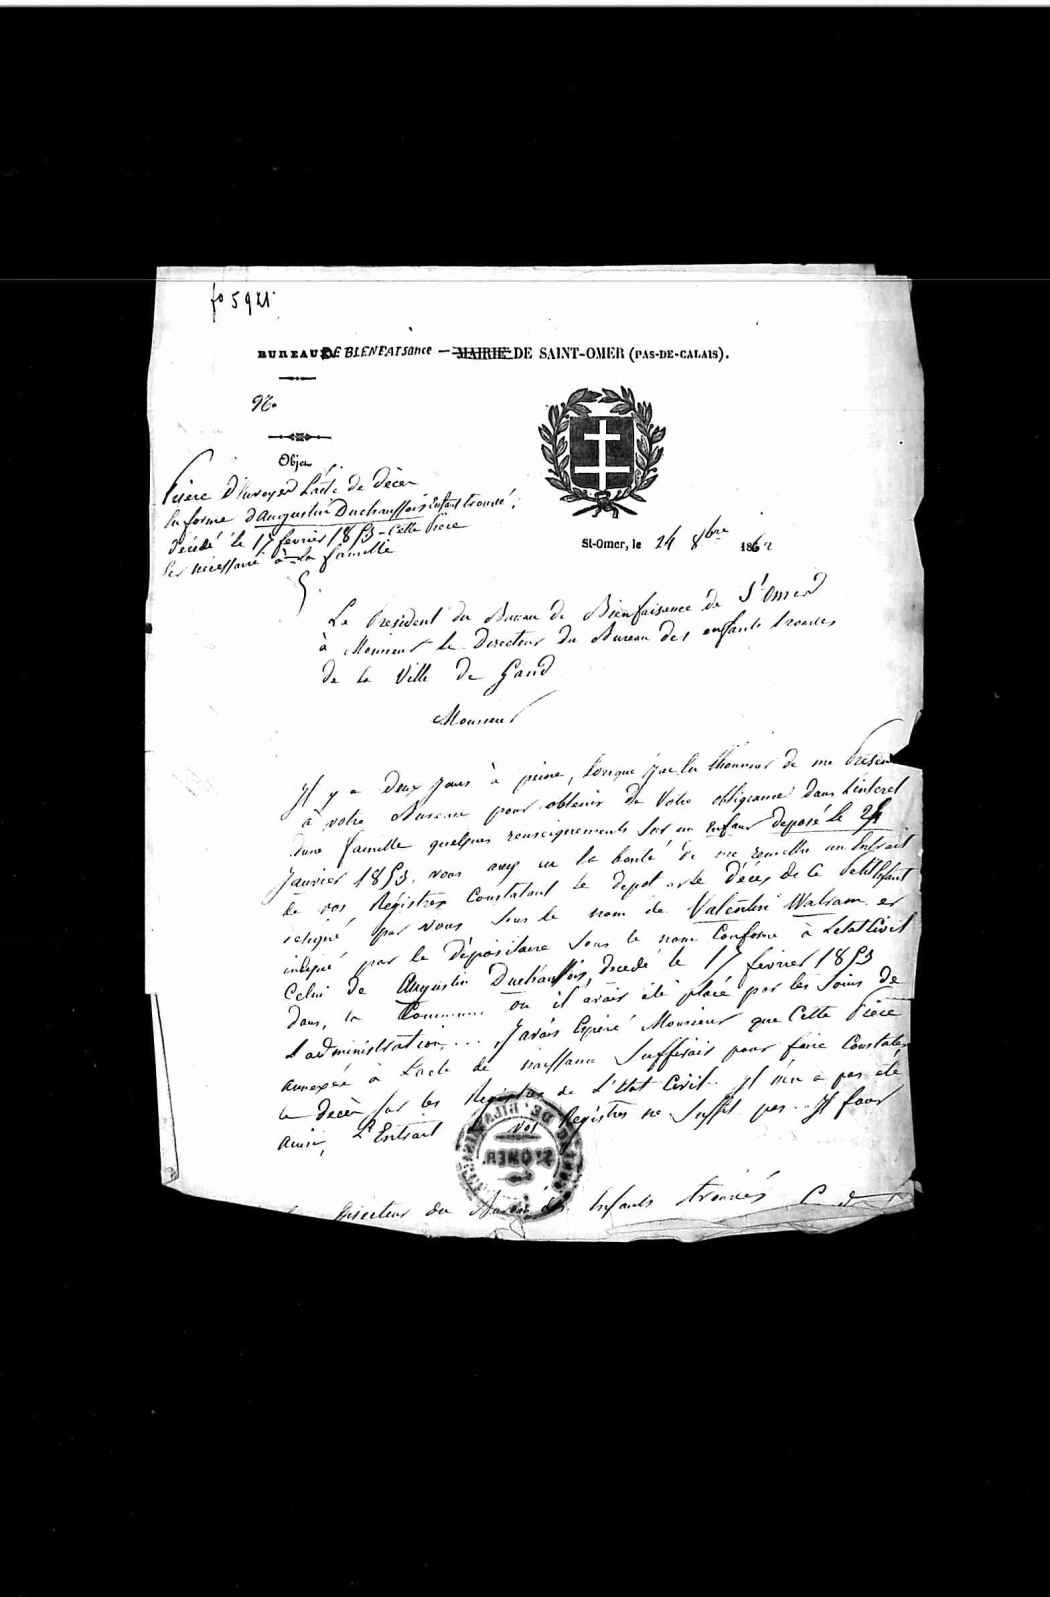 fo 5921.
BUREAU DE BIENFAISANCE — MAIRIE DE SAINT-OMER (PAS-DE-CALAIS).
No
Objet
Prière d'Envoyer l'acte de décès
en forme d'Augustin Duchaussois enfant trouvé,
décédé le 17 février 1853 - Cette Pièce
est nécessaire à la famille
St-Omer, le 24 8bre 1862
Le President du Bureau de Bienfaisance de St Omer
à Monsieur le Directeur du Bureau des enfants trouvés
de la Ville de Gand
Monsieur
Il y a deux jours à peine, lorsque j'ai eu l'honneur de me Presenter
à votre Bureau pour obtenir de Votre obligeance dans l'interet
d'une famille quelques renseignements sur un enfant deposé le 24
Janvier 1853. vous avez eu la bonté de me remettre un Extrait
de vos Registres Constatant le depot et le Décès de ce Petit Enfant
par vous sous le nom de Valentin Walram et
indiqué par le dépositaire sous le nom Conforme à l'etat Civil
Celui de Augustin Duchaussois, decedé le 17 fevrier 1853
dans la Commune ou il avait été placé par les soins de
l'administration... J'avais Espéré Monsieur que Cette Pièce
annexée à l'acte de naissance Suffirait pour faire Constater
le decès sur les Registres de l'Etat Civil. Il n'en a pas été
ainsi, L'Extrait de Vos Registres ne Suffit pas. Il faut
BUREAU DE BIENFAISANCE
ST OMER
Directeur du Bureau des Enfants trouvés